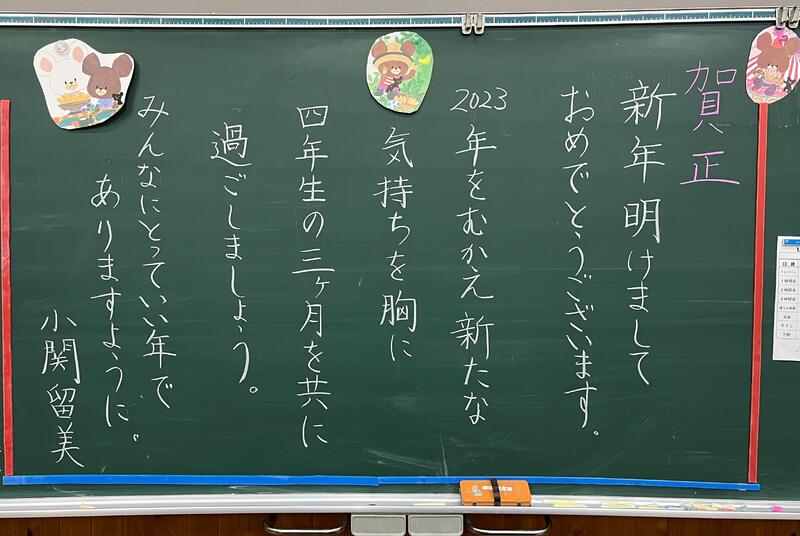 賀正
新年明けまして
おめでとうございます。
2023年をむかえ新たな
気持ちを胸に
四年生の三ヶ月を共に
過ごしましょう。
みんなにとっていい年で
ありますように。
小関留美